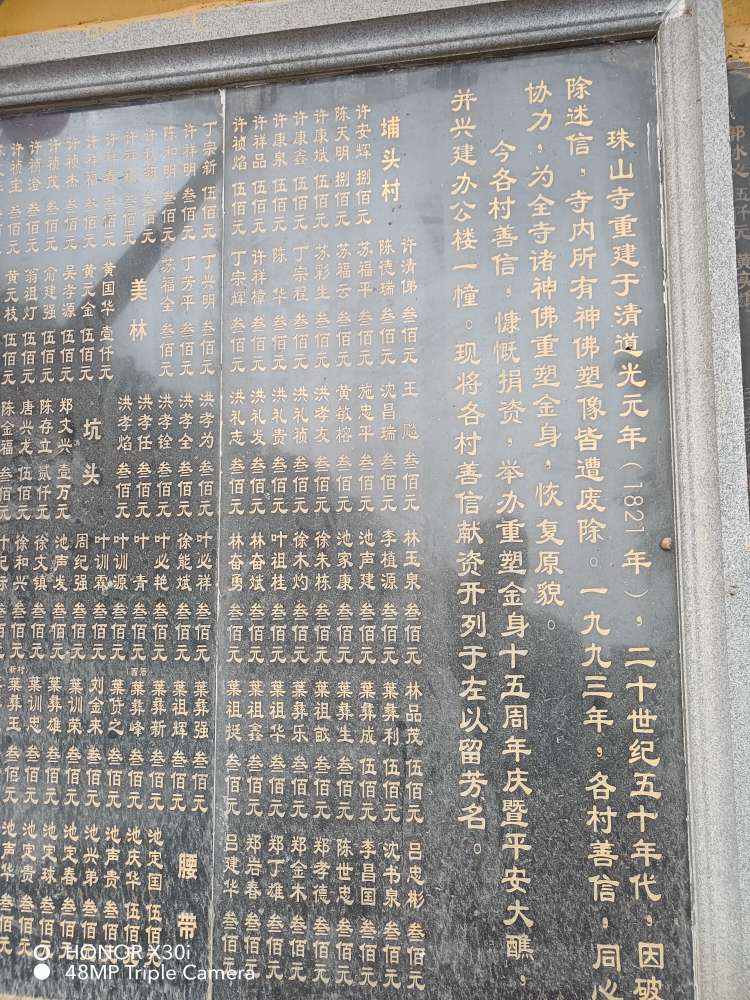 珠山寺重建于清道光元年(1821年),二十世纪五十年代,因破
除迷信,寺内所有神佛塑像皆遭废除。一九九三年,各村善信,同心
协力,为全寺诸神佛重塑金身,恢复原貌。
今各村善信,慷慨捐资,举办重塑金身十五周年庆暨平安大醮,
并兴建办公楼一幢。现将各村善信献资开列于左以留芳名。
埔头村
许安辉 捌佰元
陈天明 捌佰元
许康斌 伍佰元
许康鑫 伍佰元
许康泉 伍佰元
许祥品 伍佰元
许祯焰 伍佰元
丁宗新 伍佰元
许祥明 叁佰元
陈和明 叁佰元
许祥福 叁佰元
许祯杰 叁佰元
许祯茂 叁佰元
许祯澄 叁佰元
许祯宝 叁佰元
许清俤 叁佰元
陈德瑞 叁佰元
苏福平 叁佰元
苏福云 叁佰元
苏彩生 叁佰元
丁宗程 叁佰元
陈华 叁佰元
许祥樟 叁佰元
丁宗辉 叁佰元
丁兴明 叁佰元
丁芳平 叁佰元
苏福全 叁佰元
美林
黄国华 壹仟元
黄元金 伍佰元
吴孝源 伍佰元
俞建强 伍佰元
翁祖灯 伍佰元
黄元枝 伍佰元
王飚 叁佰元
沈昌瑞 叁佰元
施忠平 叁佰元
黄敏榕 叁佰元
洪孝友 叁佰元
洪礼祯 叁佰元
洪礼贵 叁佰元
洪礼发 叁佰元
洪礼志 叁佰元
洪孝为 叁佰元
洪孝全 叁佰元
洪孝铨 叁佰元
洪孝任 叁佰元
洪孝焰 叁佰元
坑头
郑文兴 壹万元
陈存立 贰仟元
唐兴龙 伍佰元
陈金福 叁佰元
林玉泉 叁佰元
李植源 叁佰元
池声建 叁佰元
池家康 叁佰元
徐朱栋 叁佰元
徐木灼 叁佰元
叶祖桂 叁佰元
林奋斌 叁佰元
林奋勇 叁佰元
叶必祥 叁佰元
徐能斌 叁佰元
叶必艳 叁佰元
叶青 叁佰元
叶训源 叁佰元
叶训霖 叁佰元
周纪强 叁佰元
池声发 叁佰元
徐文镇 叁佰元
徐和兴 叁佰元
林品茂 伍佰元
葉彝利 伍佰元
葉彝成 伍佰元
葉彝生 叁佰元
葉祖 叁佰元
葉彝乐 叁佰元
葉祖华 叁佰元
葉祖鑫 叁佰元
葉祖挺 叁佰元
葉彝强 叁佰元
葉祖辉 叁佰元
葉彝新 叁佰元
葉彝峰 叁佰元
葉贤之 叁佰元
刘金来 叁佰元
葉训荣 叁佰元
葉彝雄 叁佰元
葉训忠 叁佰元
(新村)
葉彝玉 叁佰元
吕忠彬 叁佰元
沈书泉 叁佰元
李昌国 叁佰元
陈世忠 叁佰元
郑孝德 叁佰元
郑金木 叁佰元
郑丁雄 叁佰元
郑岩春 叁佰元
吕建华 叁佰元
腰带
池定国 伍佰元
池庆华 伍佰元
池声贵 叁佰元
池兴弟 叁佰元
池定春 叁佰元
池定球 叁佰元
池定贵 叁佰元
池声华 叁佰元
HONOR X30i
48MP Triple Camera